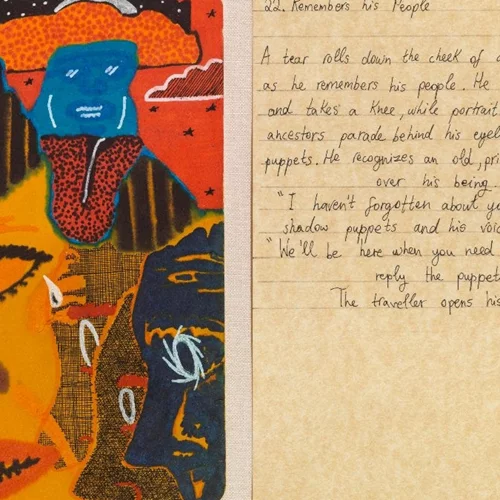 22. Remembers his People
A tear rolls down the cheek of
as he remembers his people. He
and takes a knee, while portrait
ancestors parade behind his
puppets. He recognizes an old,
over his being.
"I haven't forgotten about
shadow puppets and his
"We'll be here when you need
reply the
The traveller opens his